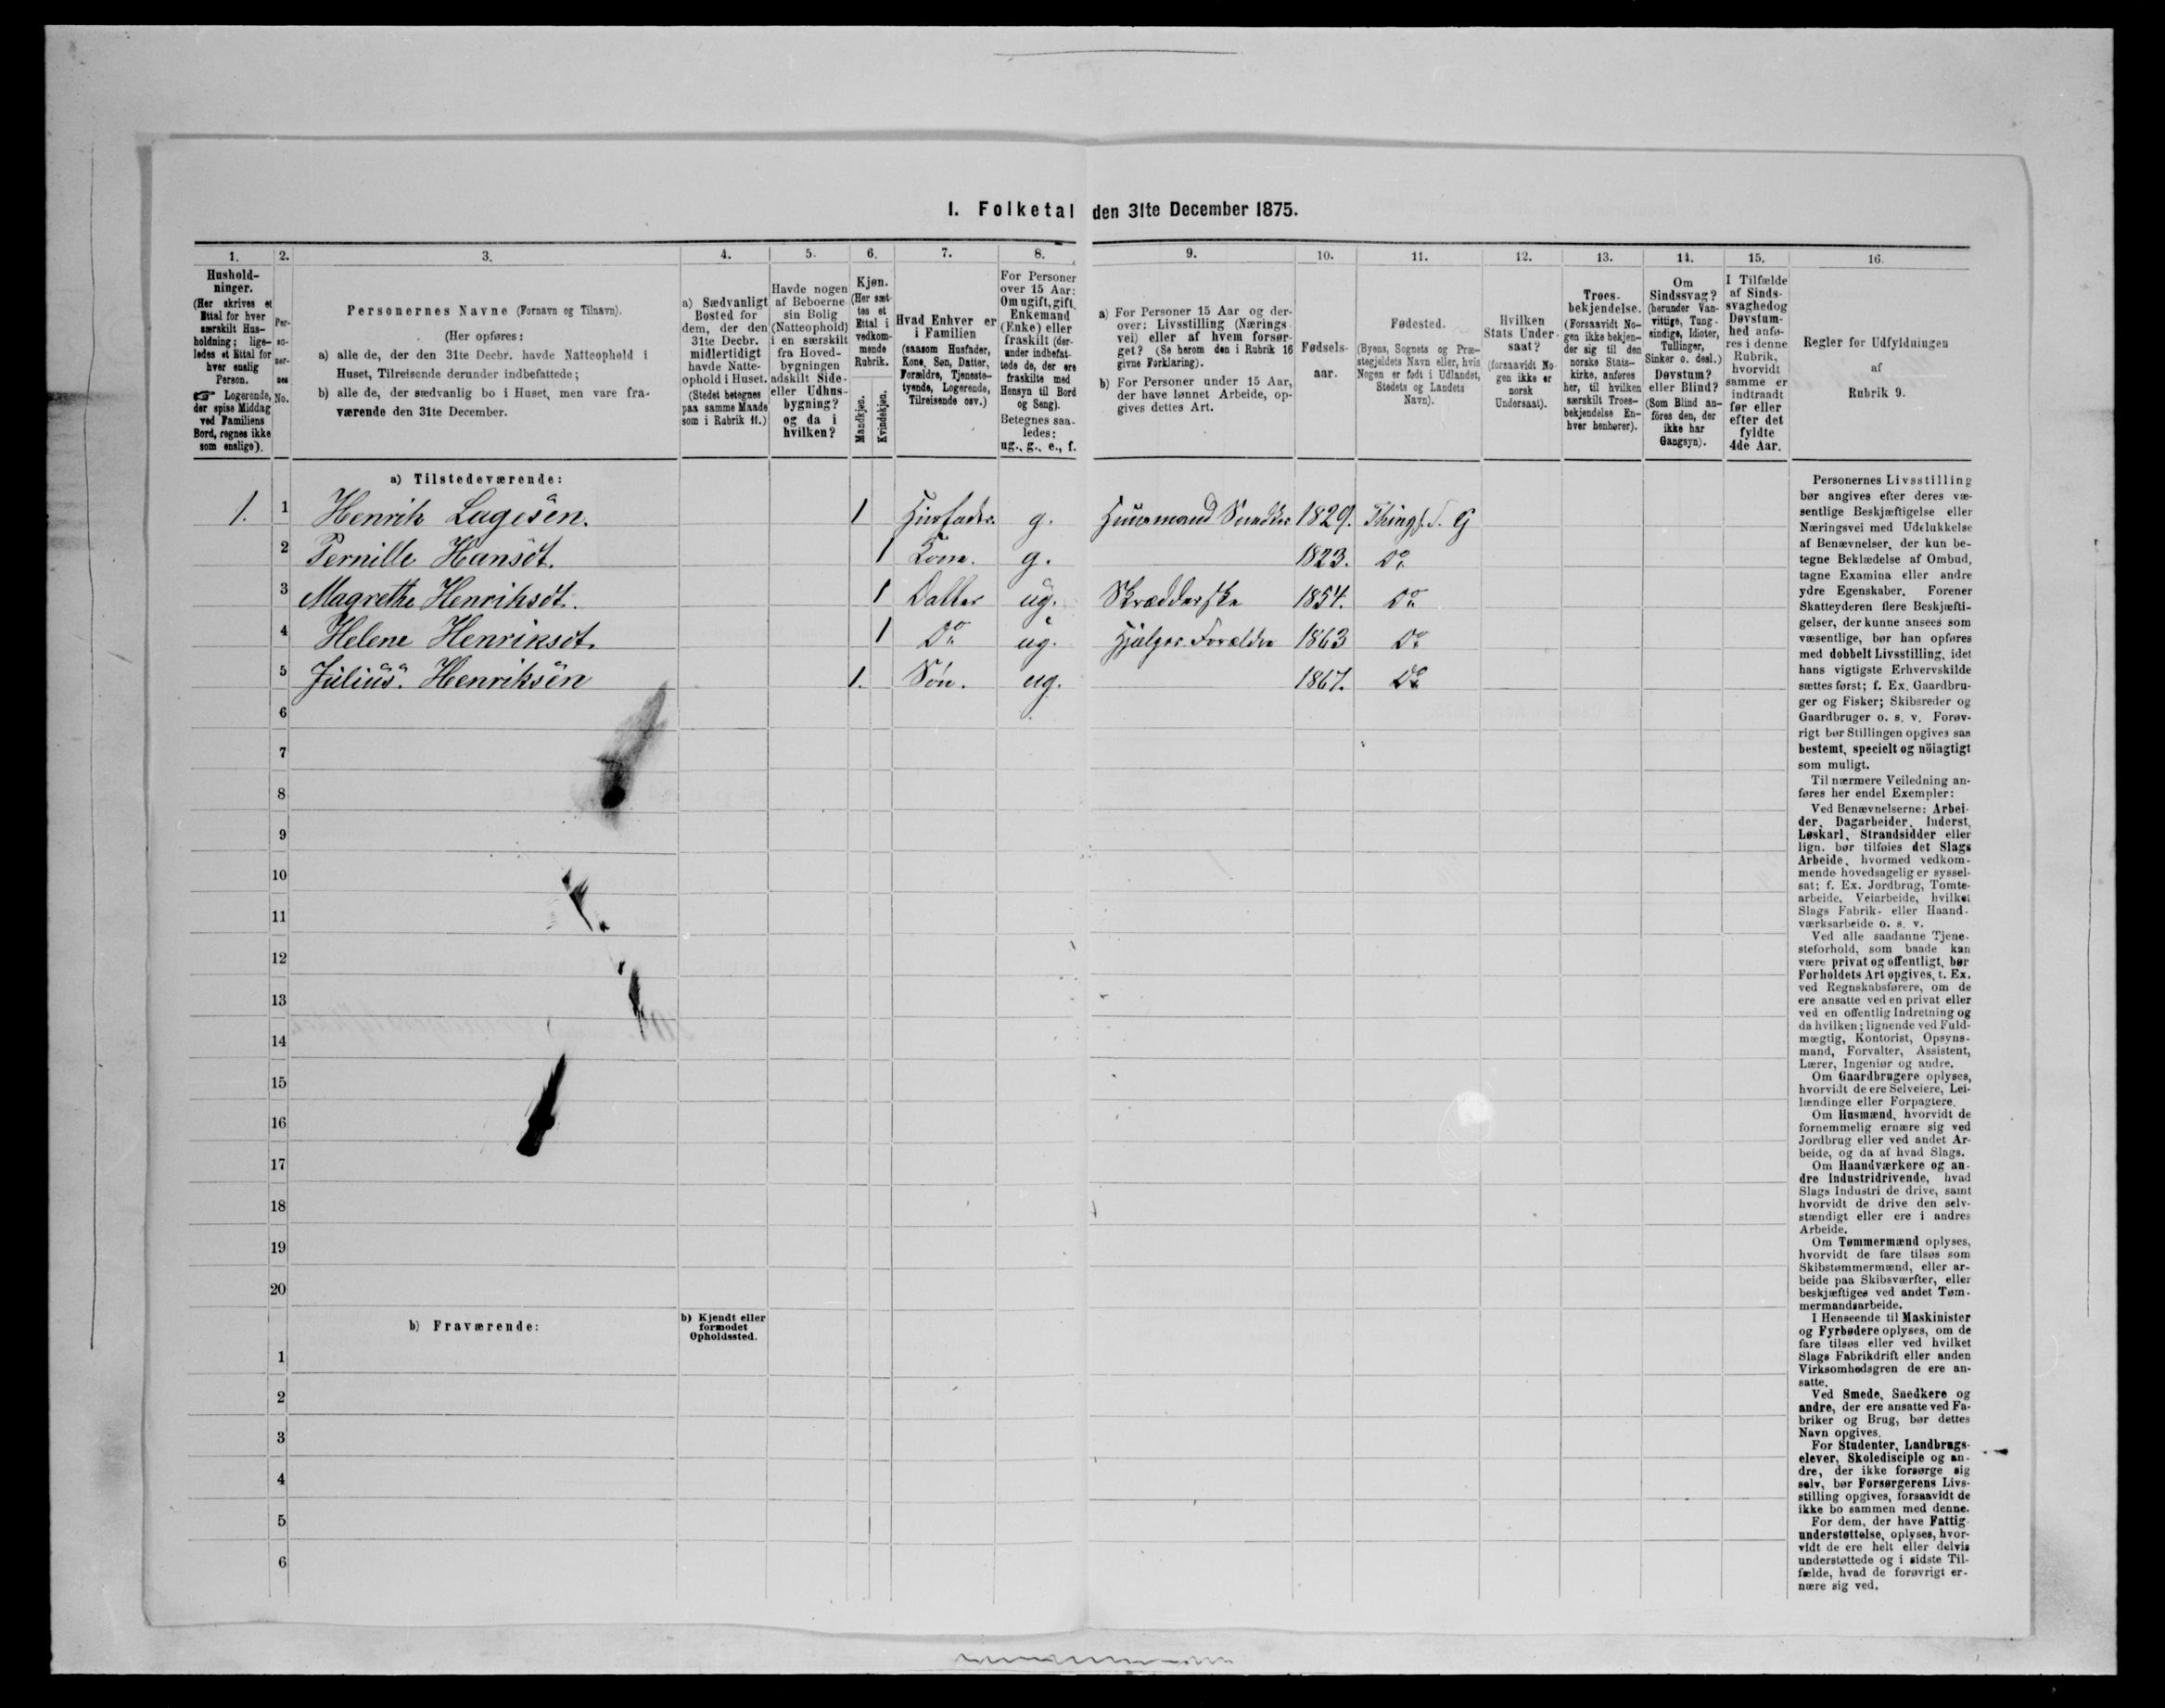 I. Folketal den 31te December 1875.
1. 2. 3. 4. 5. 6. 7. 8. 9. 10. 11. 12. 13. 14. 15. 16.
Hushold-
ninger.
(Her skrives et
Ettal for hver
særskilt Hus-
holdning; lige-
ledes et Ettal for
hver enslig
Person.
☞ Logerende,
der spise Middag
ved Familiens
Bord, regnes ikke
som enslige).
Per-
so-
ner-
nes
No.
Personernes Navne (Fornavn og Tilnavn).
(Her opføres:
a) alle de, der den 31te Decbr. havde Natteophold i
Huset, Tilreisende derunder indbefattede;
b) alle de, der sædvanlig bo i Huset, men vare fra-
værende den 31te December.
a) Sædvanligt
Bosted for
dem, der den
31te Decbr.
midlertidigt
havde Natte-
ophold i Huset.
(Stedet betegnes
paa samme Maade
som i Rubrik 11.)
Havde nogen
af Beboerne
sin Bolig
(Natteophold)
i en særskilt
fra Hoved-
bygningen
adskilt Side-
eller Udhus-
bygning?
og da i
hvilken?
Kjøn.
(Her sæt-
tes et
Ettal i
vedkom-
mende
Rubrik.
Mandkjøn.
Kvindekjøn.
Hvad Enhver er
i Familien
(saasom Husfader,
Kone, Søn, Datter,
Forældre, Tjeneste-
tyende, Logerende,
Tilreisende osv.)
For Personer
over 15 Aar:
Om ugift, gift,
Enkemand
(Enke) eller
fraskilt (der-
under indbefat-
tede de, der ere
fraskilte med
Hensyn til Bord
og Seng).
Betegnes saa-
ledes:
ug., g., e., f.
a) For Personer 15 Aar og der-
over: Livsstilling (Nærings-
vei) eller af hvem forsør-
get? (Se herom den i Rubrik 16
givne Forklaring).
b) For Personer under 15 Aar,
der have lønnet Arbeide, op-
gives dettes Art.
Fødsels-
aar.
Fødested.
(Byens, Sognets og Præ-
stegjeldets Navn eller, hvis
Nogen er født i Udlandet,
Stedets og Landets
Navn).
Hvilken
Stats Under-
saat?
(forsaavidt No-
gen ikke er
norsk
Undersaat).
Troes-
bekjendelse.
(Forsaavidt No-
gen ikke bekjen-
der sig til den
norske Stats-
kirke, anføres
her, til hvilken
særskilt Troes-
bekjendelse En-
hver henhører).
Om
Sindssvag?
(herunder Van-
vittige, Tung-
sindige, Idioter,
Tullinger,
Sinker o. desl.)
Døvstum?
eller Blind?
(Som Blind an-
føres den, der
ikke har
Gangsyn).
I Tilfælde
af Sinds-
svaghed og
Døvstum-
hed anfø-
res i denne
Rubrik,
hvorvidt
samme er
indtraadt
før eller
efter det
fyldte
4de Aar.
Regler for Udfyldningen
af
Rubrik 9.
a) Tilstedeværende:
1. 1 Henrik Lagesen. 1 Husfader. g. Huusmand Snedker 1829. Thingl. S. G
2 Pernille Hansdt. 1 Kone. g. 1823. Do.
3 Magrethe Henriksdt. 1 Datter ug. Skrædderske 1854. Do.
4 Helene Henriksdt. 1 Do. ug. Hjælper Forældre 1863 Do.
5 Julius. Henriksen 1. Søn. ug. 1867. Do.
6
7
8
9
10
11
12
13
14
15
16
17
18
19
20
b) Fraværende:
b) Kjendt eller
formodet
Opholdssted.
1
2
3
4
5
6
Personernes Livsstilling
bør angives efter deres væ-
sentlige Beskjæftigelse eller
Næringsvei med Udelukkelse
af Benævnelser, der kun be-
tegne Beklædelse af Ombud,
tagne Examina eller andre
ydre Egenskaber. Forener
Skatteyderen flere Beskjæfti-
gelser, der kunne ansees som
væsentlige, bør han opføres
med dobbelt Livsstilling, idet
hans vigtigste Erhvervskilde
sættes først; f. Ex. Gaardbru-
ger og Fisker; Skibsreder og
Gaardbruger o. s. v. Forøv-
rigt bør Stillingen opgives saa
bestemt, specielt og nöiagtigt
som muligt.
Til nærmere Veiledning an-
føres her endel Exempler:
Ved Benævnelserne: Arbei-
der, Dagarbeider, Inderst,
Løskarl, Strandsidder eller
lign. bør tilføies det Slags
Arbeide, hvormed vedkom-
mende hovedsagelig er syssel-
sat; f. Ex. Jordbrug, Tomte-
arbeide, Veiarbeide, hvilket
Slags Fabrik- eller Haand-
værksarbeide o. s. v.
Ved alle saadanne Tjene-
steforhold, som baade kan
være privat og offentligt, bør
Forholdets Art opgives, t. Ex.
ved Regnskabsførere, om de
ere ansatte ved en privat eller
ved en offentlig Indretning og
da hvilken; lignende ved Fuld-
mægtig, Kontorist, Opsyns-
mand, Forvalter, Assistent,
Lærer, Ingeniør og andre.
Om Gaardbrugere oplyses,
hvorvidt de ere Selveiere, Lei-
lændinge eller Forpagtere.
Om Husmænd, hvorvidt de
fornemmelig ernære sig ved
Jordbrug eller ved andet Ar-
beide, og da af hvad Slags.
Om Haandværkere og an-
dre Industridrivende, hvad
Slags Industri de drive, samt
hvorvidt de drive den selv-
stændigt eller ere i andres
Arbeide.
Om Tømmermænd oplyses,
hvorvidt de fare tilsøs som
Skibstømmermænd, eller ar-
beide paa Skibsværfter, eller
beskjæftiges ved andet Tøm-
mermandsarbeide.
I Henseende til Maskinister
og Fyrbødere oplyses, om de
fare tilsøs eller ved hvilket
Slags Fabrikdrift eller anden
Virksomhedsgren de ere an-
satte.
Ved Smede, Snedkere og
andre, der ere ansatte ved Fa-
briker og Brug, bør dettes
Navn opgives.
For Studenter, Landbrugs-
elever, Skoledisciple og an-
dre, der ikke forsørge sig
selv, bør Forsørgerens Livs-
stilling opgives, forsaavidt de
ikke bo sammen med denne.
For dem, der have Fattig-
understøttelse, oplyses, hvor-
vidt de ere helt eller delvis
understøttede og i sidste Til-
fælde, hvad de forøvrigt er-
nære sig ved.